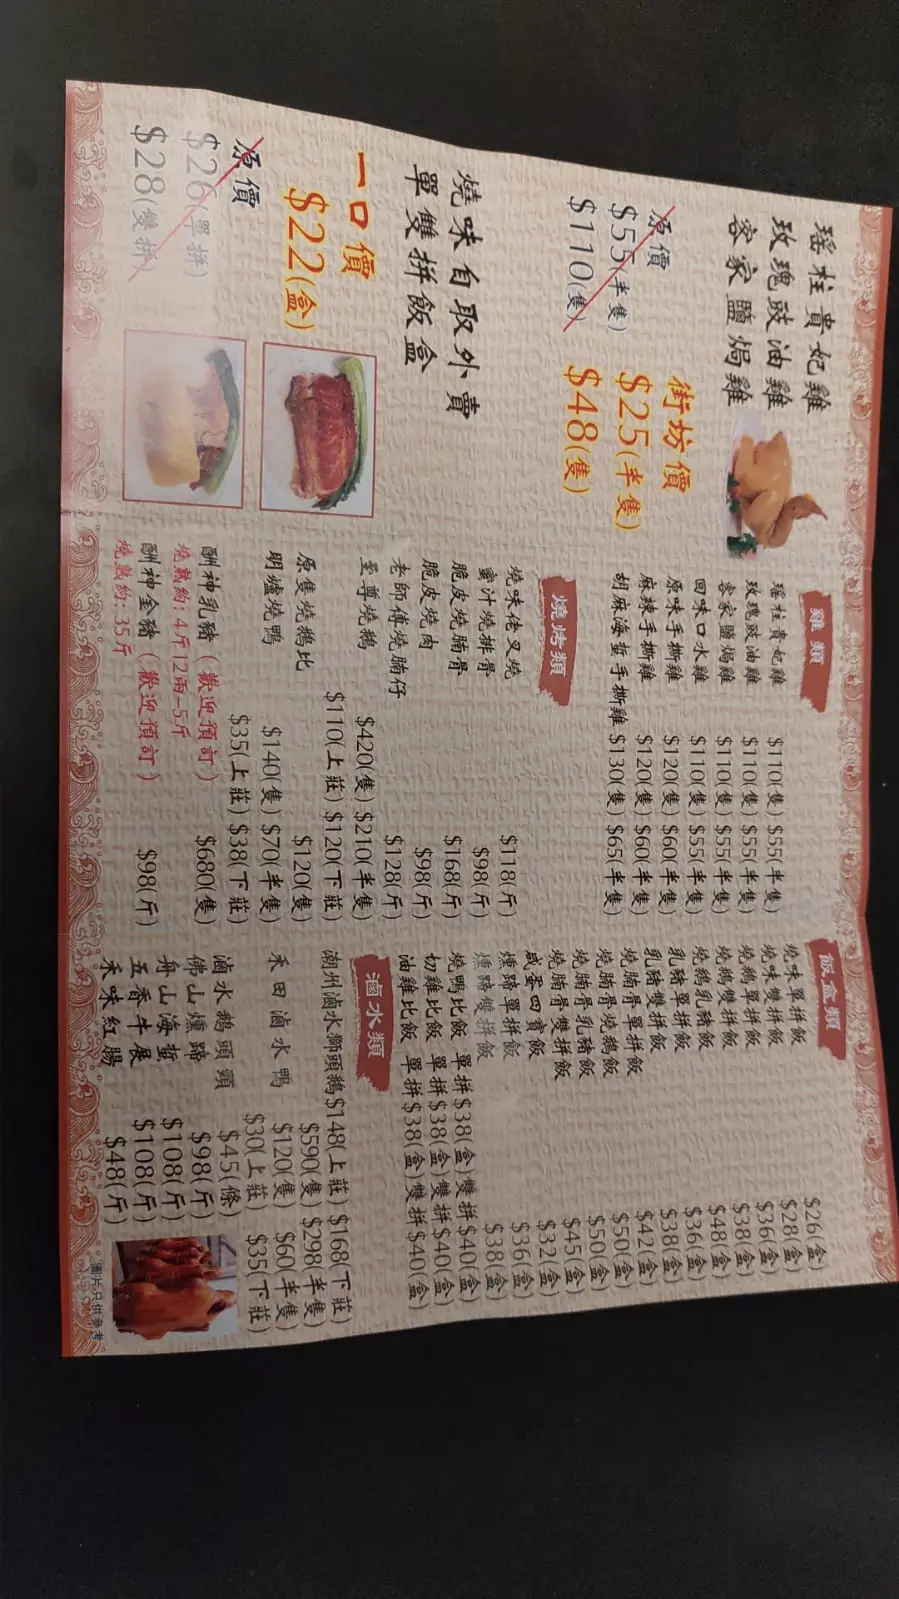 瑤柱貴妃雞
玫瑰豉油雞
客家鹽焗雞
原價
$55(半隻)
$110(隻)
街坊價
$25(半隻)
$48(隻)
燒味自取外賣
單雙拼飯盒
一口價
$22(盒)
原價
$26(單拼)
$28(雙拼)
雞類
瑤柱貴妃雞 $110(隻) $55(半隻)
玫瑰豉油雞 $110(隻) $55(半隻)
客家鹽焗雞 $110(隻) $55(半隻)
回味口水雞 $110(隻) $55(半隻)
原味手撕雞 $120(隻) $60(半隻)
麻辣手撕雞 $120(隻) $60(半隻)
胡麻海蜇手撕雞 $130(隻) $65(半隻)
燒烤類
燒味佬叉燒 $118(斤)
蜜汁燒排骨 $98(斤)
脆皮燒腩骨 $168(斤)
脆皮燒肉 $98(斤)
老師傅燒腩仔 $128(斤)
至尊燒鵝 $420(隻) $210(半隻)
$110(上莊) $120(下莊)
原隻燒鵝比 $120(隻)
明爐燒鴨 $140(隻) $70(半隻)
$35(上莊) $38(下莊)
酬神乳豬(歡迎預訂) $680(隻)
燒熟約:4斤12兩-5斤
酬神金豬(歡迎預訂) $98(斤)
燒熟約:35斤
飯盒類
燒味單拼飯 $26(盒)
燒味雙拼飯 $28(盒)
燒鵝單拼飯 $36(盒)
燒鵝雙拼飯 $38(盒)
燒鵝乳豬飯 $48(盒)
乳豬單拼飯 $36(盒)
乳豬雙拼飯 $38(盒)
燒腩骨單拼飯 $42(盒)
燒腩骨燒鵝飯 $50(盒)
燒腩骨乳豬飯 $50(盒)
燒腩骨雙拼飯 $45(盒)
咸蛋四寶飯 $32(盒)
燻蹄單拼飯 $36(盒)
燻蹄雙拼飯 $38(盒)
燒鴨比飯 單拼$38(盒)雙拼$40(盒)
切雞比飯 單拼$38(盒)雙拼$40(盒)
油雞比飯 單拼$38(盒)雙拼$40(盒)
滷水類
潮州滷水獅頭鵝$148(上莊) $168(下莊)
$590(隻) $298(半隻)
禾田滷水鴨 $120(隻) $60(半隻)
$30(上莊) $35(下莊)
滷水鵝頭頸 $45(條)
佛山燻蹄 $98(斤)
舟山海蜇 $108(斤)
五香牛展 $108(斤)
禾味紅腸 $48(斤)
(圖片只供參考)